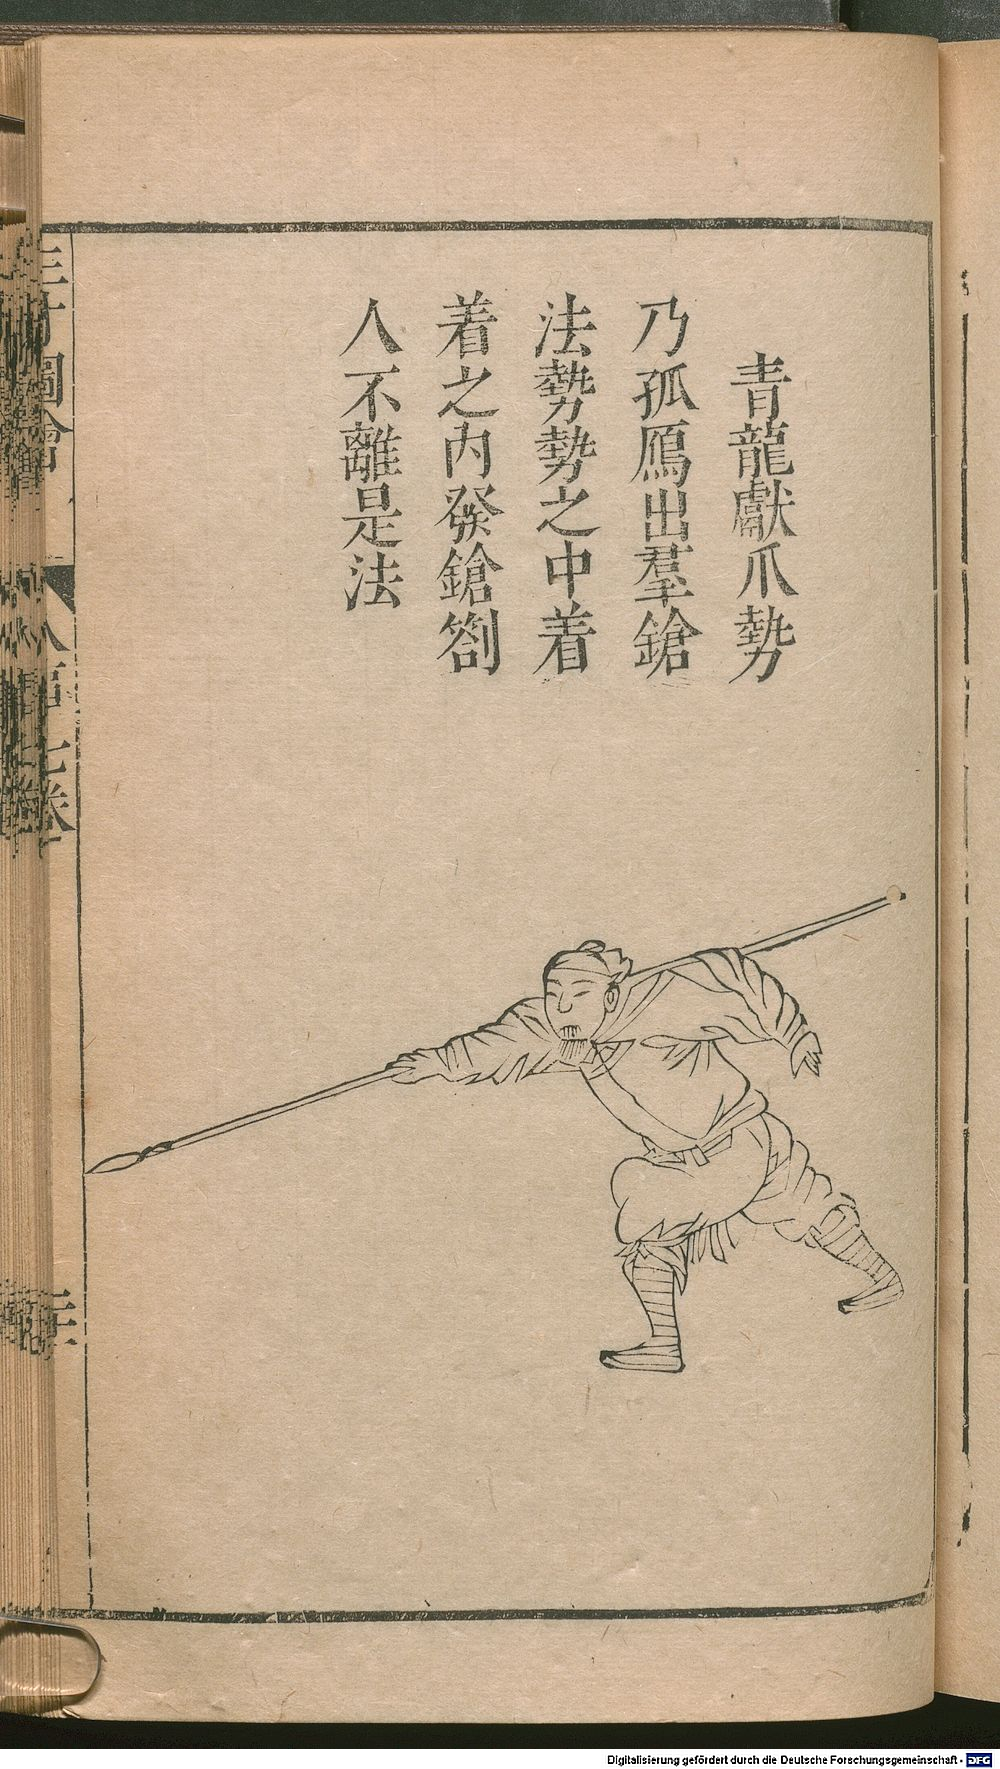 青龍獻爪勢
乃孤鴈出羣鎗
法勢勢之中着
着之內發鎗劄
人不離是法
三才圖會
七卷
Digitalisierung gefördert durch die Deutsche Forschungsgemeinschaft - DFG